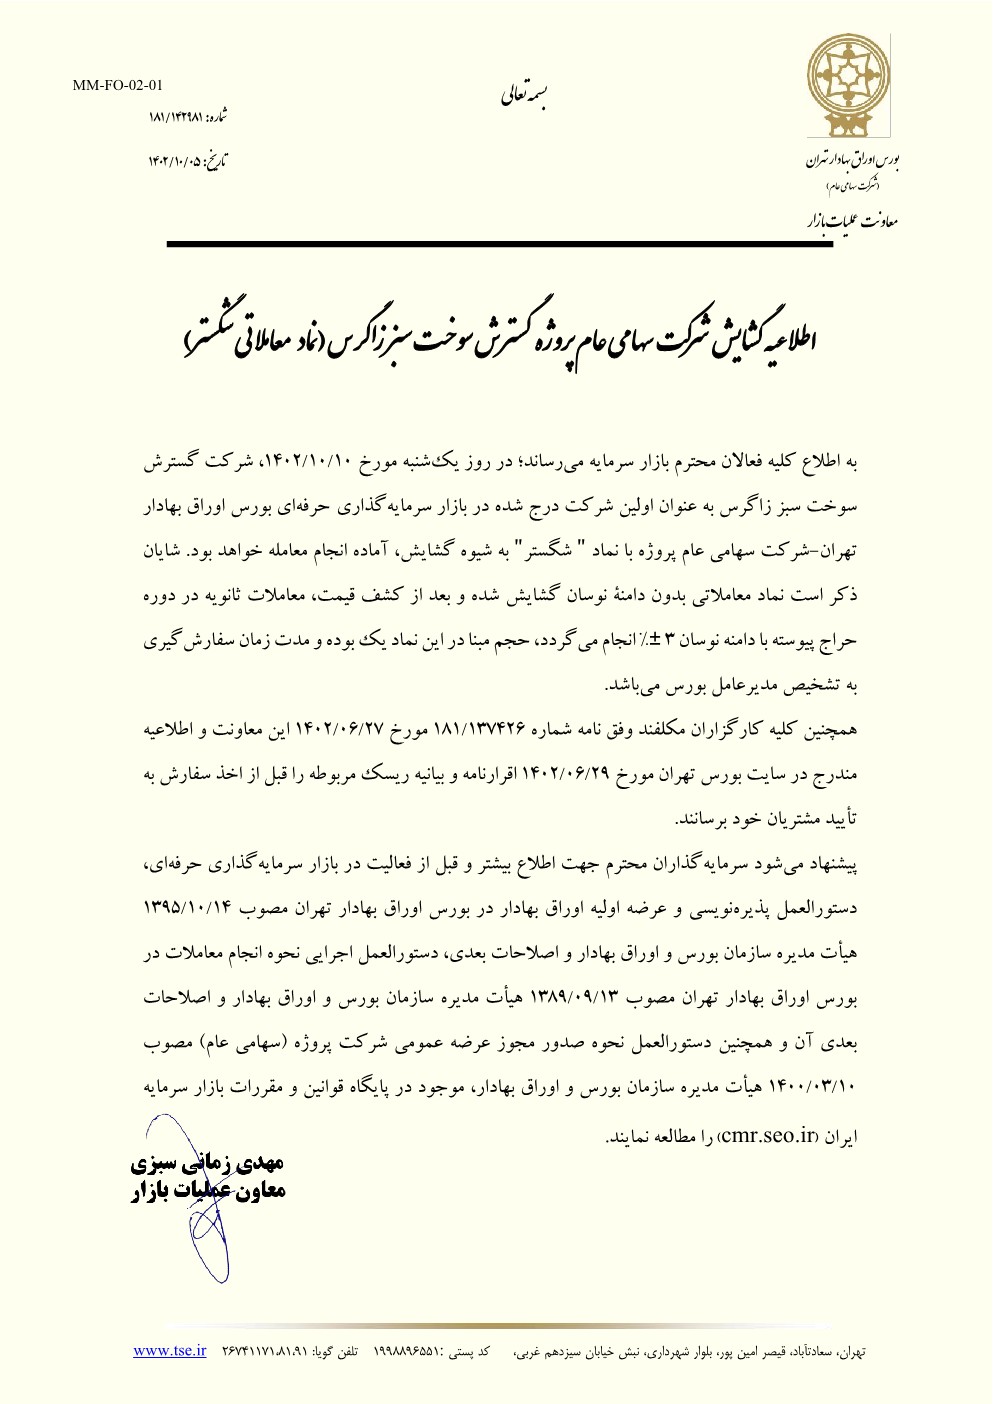 MM-FO-02-01
بسمه تعالی
شماره: ۱۸۱/۱۴۲۹۸۱
تاریخ: ۱۴۰۲/۱۰/۰۵
بورس اوراق بهادار تهران
(شرکت سهامی عام)
معاونت عملیات بازار
اطلاعیه گشایش شرکت سهامی عام پروژه گسترش سوخت سبز زاگرس (نماد معاملاتی شگستر)
به اطلاع کلیه فعالان محترم بازار سرمایه می‌رساند؛ در روز یک‌شنبه مورخ ۱۴۰۲/۱۰/۱۰، شرکت گسترش
سوخت سبز زاگرس به عنوان اولین شرکت درج شده در بازار سرمایه‌گذاری حرفه‌ای بورس اوراق بهادار
تهران-شرکت سهامی عام پروژه با نماد " شگستر" به شیوه گشایش، آماده انجام معامله خواهد بود. شایان
ذکر است نماد معاملاتی بدون دامنۀ نوسان گشایش شده و بعد از کشف قیمت، معاملات ثانویه در دوره
حراج پیوسته با دامنه نوسان ۳ ±٪ انجام می‌گردد، حجم مبنا در این نماد یک بوده و مدت زمان سفارش‌گیری
به تشخیص مدیرعامل بورس می‌باشد.
همچنین کلیه کارگزاران مکلفند وفق نامه شماره ۱۸۱/۱۳۷۴۲۶ مورخ ۱۴۰۲/۰۶/۲۷ این معاونت و اطلاعیه
مندرج در سایت بورس تهران مورخ ۱۴۰۲/۰۶/۲۹ اقرارنامه و بیانیه ریسک مربوطه را قبل از اخذ سفارش به
تأیید مشتریان خود برسانند.
پیشنهاد می‌شود سرمایه‌گذاران محترم جهت اطلاع بیشتر و قبل از فعالیت در بازار سرمایه‌گذاری حرفه‌ای،
دستورالعمل پذیره‌نویسی و عرضه اولیه اوراق بهادار در بورس اوراق بهادار تهران مصوب ۱۳۹۵/۱۰/۱۴
هیأت مدیره سازمان بورس و اوراق بهادار و اصلاحات بعدی، دستورالعمل اجرایی نحوه انجام معاملات در
بورس اوراق بهادار تهران مصوب ۱۳۸۹/۰۹/۱۳ هیأت مدیره سازمان بورس و اوراق بهادار و اصلاحات
بعدی آن و همچنین دستورالعمل نحوه صدور مجوز عرضه عمومی شرکت پروژه (سهامی عام) مصوب
۱۴۰۰/۰۳/۱۰ هیأت مدیره سازمان بورس و اوراق بهادار، موجود در پایگاه قوانین و مقررات بازار سرمایه
ایران (cmr.seo.ir) را مطالعه نمایند.
مهدی زمانی سبزی
معاون عملیات بازار
تهران، سعادت‌آباد، قیصر امین پور، بلوار شهرداری، نبش خیابان سیزدهم غربی، کد پستی :۱۹۹۸۸۹۶۵۵۱ تلفن گویا: ۲۶۷۴۱۱۷۱،۸۱،۹۱ www.tse.ir